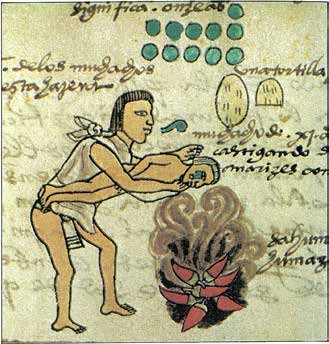 significa . onze años
. delos muchachos
esta hazera
una tortilla
muchacho de . xi . a
castigando
narizes con
sahum
humaz